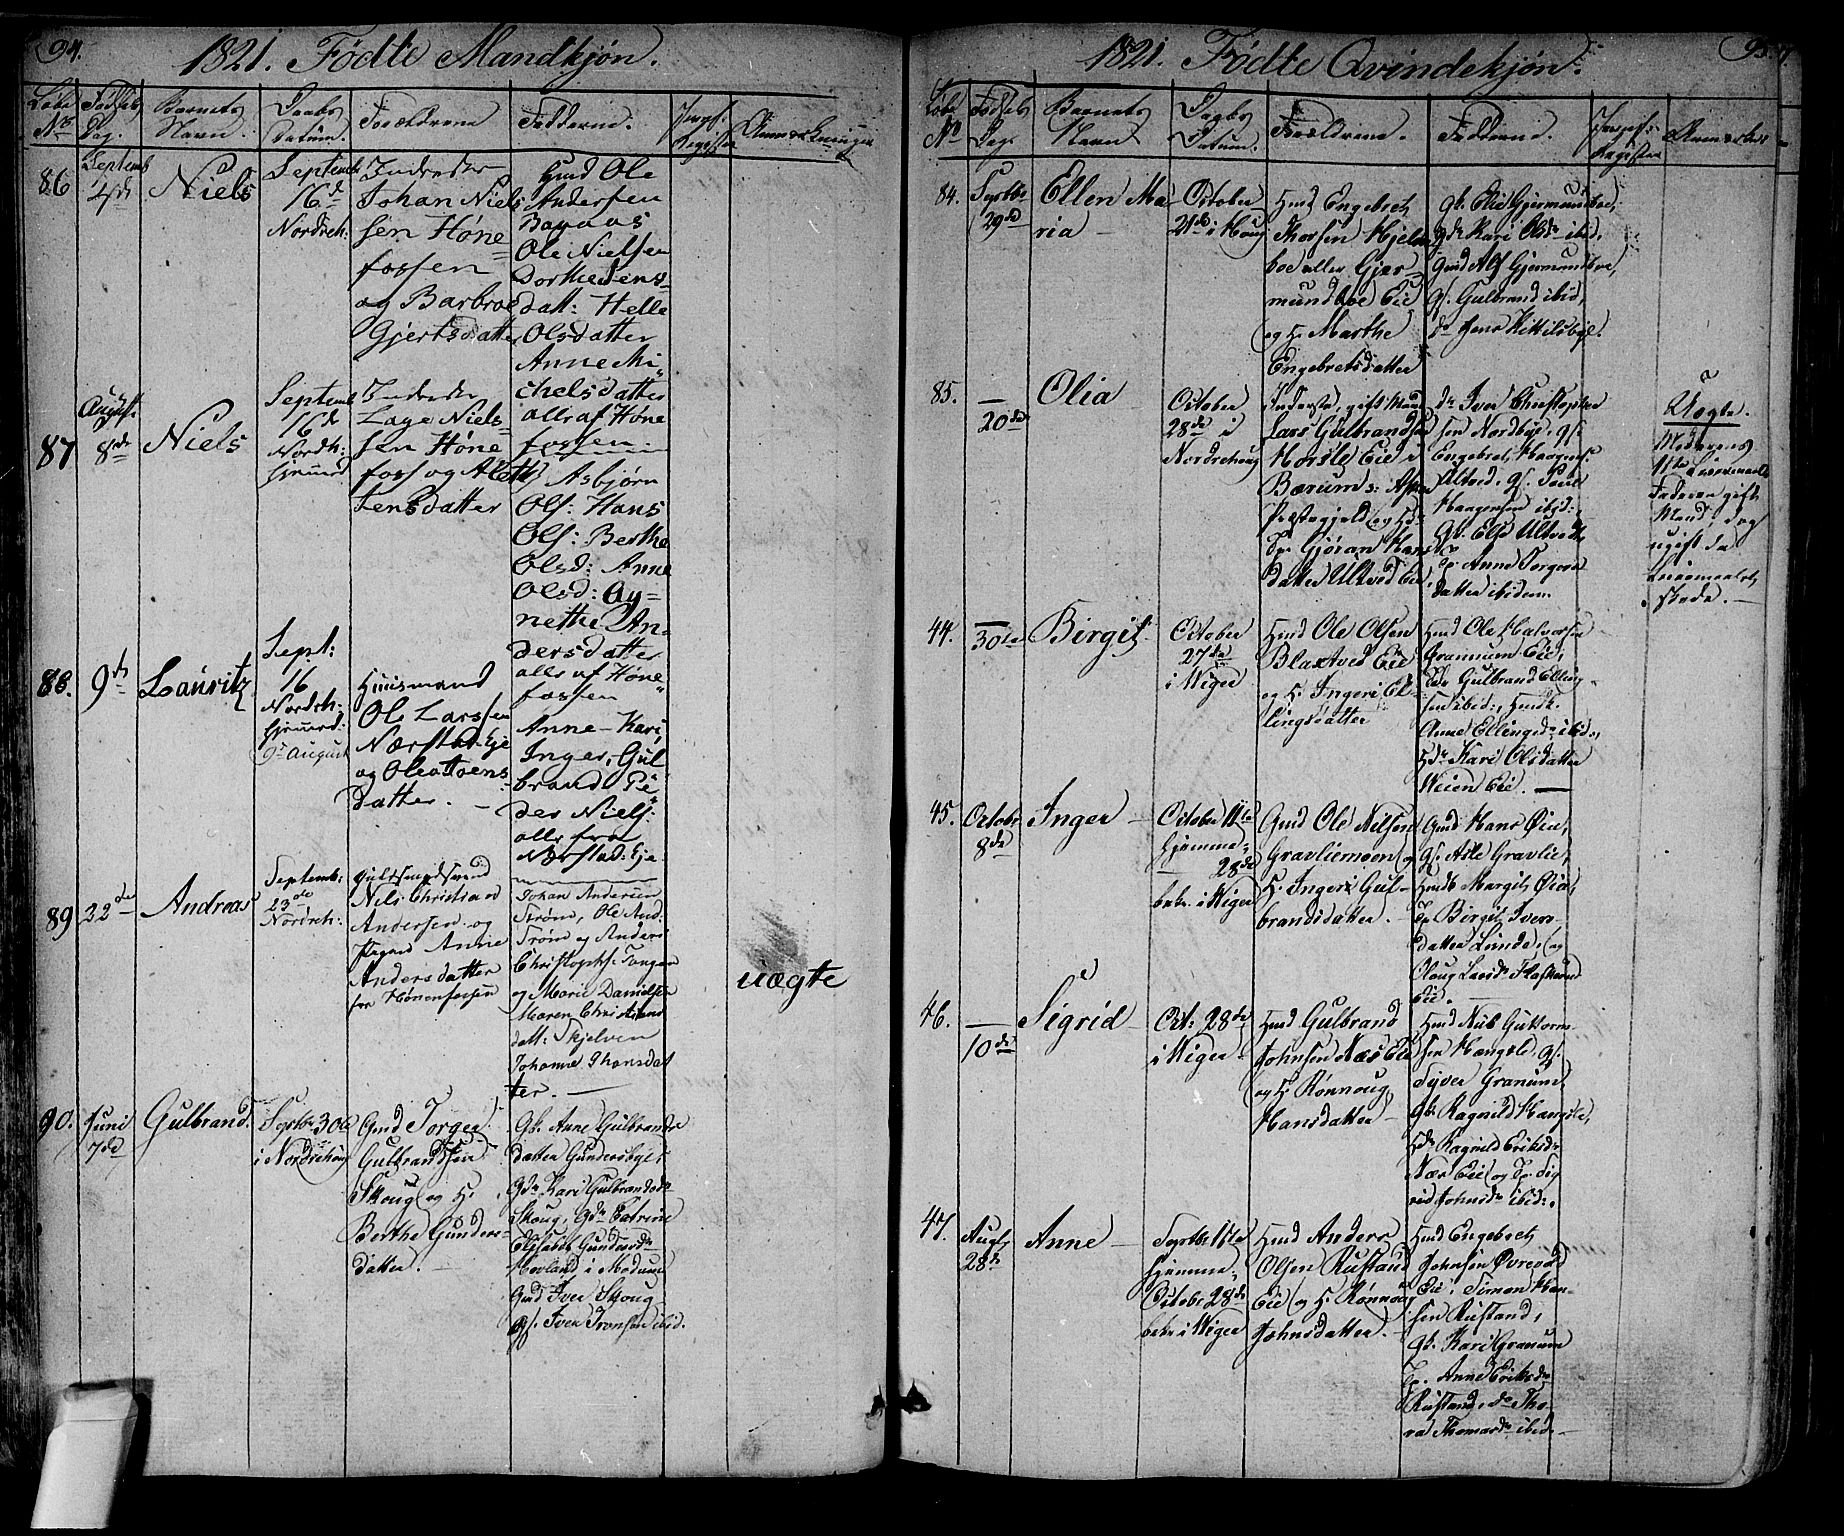 94.
1821. Födte Mandkjön.
Løbe Nr.
Fødsels Dag.
Barnets Navn.
Daabs Datum.
Forældrene
Fadderne.
Anmærkninger
86
Septemb
4de
Niels
Septemb
16d
Nordreh:
Inderster
Johan Niels
sen Høne
fossen
og Barbroe
Gjertsdatter
Hmd Ole
Andersen
Ole Nielsen
Dorthe Jens
datt: Helle
Olsdatter
Anne Mi
chelsdatter
alle af Høne
fossen.
87
August
8de
Niels
Septemb
16d
Nordreh:
hjemmed
Inderster
Lage Niels
sen Høne
foss og Aleth
Jensdatter
Asbjørn
Ols: Hans
Ols: Berthe
Olsd: Anne
Olsd: Ag-
nethe An
dersdatter
alle af Høne
fossen
88.
9de
Lauritz
Sept:
16
Nordreh:
hjemmed:
9de August
Huusmand
Ole Larssen
Nærstad: Eje
og Olea Toens
datter. -
Anne - Kari,
Inger, Gul
brand Pe
der Niels:
alle fra
Nærstad: Eje
89
22de
Andreas
Septemb:
23de
Nordreh:
Guldsmedsvend
Nils Christian
Andersen og
Pigen Anne
Andersdatter
fra Hønenfossen
Johan Andersen
Strøm, Ole And.
Strøm og Anders
Christophs: Tangen
og Marie Danielsen
Maren Christians
datt: Skjelven
Johanne Hansdat
ter. -
uægte
90.
Juni
7de
Gulbrand.
Septbr 30te
i Nordrehoug
Gmd Torger
Gulbrandsen
Skoug og H.
Berthe Gunders-
datter. -
Gk. Anne Gulbrands
datter Gundersbye,
Gdr Kari Gulbrandsdr
Skoug, Gdr Catrine
Elisabeth Gundersdr
Hovland i Modum
Gmd Iver Skoug
Gs. Iver Iversen ibid.
95.
1821. Födte Qvindekjön.
Løbe No
Fødsels Dag.
Barnets Navn
Daabs Datum.
Forældrene.
Fadderne.
84.
Septbr
29de
Ellen Ma
ria -
October
21de i Houg
Hmd Engebret
Thorsen Hjelm
boe eller Gjer-
mundboe Eie
og H. Marthe
Engebretsdatter
Gk. Elie Gjermundboe,
Gdr Kari Olsdr ibid,
Gmd Alf Gjermundboe,
Gs. Gulbrand ibid,
do Jens Kittilsbye.
85.
-
20de
Olia
October
28de i
Nordrehoug
Inderste, gift Mand
Lars Gulbrandsen
Horsle Eie i
Bærums: Asker
Præstegjeld og
Gjøran Hans
datter Ultved Eie
do Iver Christopher
sen Nordbye, Gs.
Engebret Haagens:
Ultved, Gs. Poul
Haagensen ibid:
Gk. Else Ultved,
Anne Torgers
datter ibidem.
Uægte.
Moderens
1ste Leiermaal
Faderen gift
Mand, dog
ugift da
Leiermaalet
skede. -
44.
-
30te
Birgit
October
27de
i Wiger
Hmd Ole Olsen
Blaxtved Eie
og H. Ingeri El-
lingsdatter
Hmd Ole Halvorsen
Granum Eie,
Gulbrand Elling-
sen ibid:, Hmdk.
Anne Ellingsdr ibid.,
Hdr Kari Olsdatter
Weien Eie. -
45.
Octobr
8de
Inger -
October 11te
hjemme
- 28de
bekr. i Wiger
Gmd Ole Nilsen
Gravliemoen og
H. Ingeri Gul-
brandsdatter. -
Gmd Hans Øia,
Gs. Asle Gravlie,
Hmdk Margit Øia,
Birgit Ivers
datter Lunde, og
Olaug Larsdr
Eie. -
46.
-
10de
Sigrid -
Oct: 28de
i Wiger
Hmd Gulbrand
Johnsen Næs Eie
og H. Rønnoug
Hansdatter -
Hmd Nub Guttorm
sen Hangsle, Gs.
Syver Granum
Gk. Ragnild Hangsle,
Hdr Ragnild Eriksdr
Næs Eie og Sig
rid Johnsdr ibid:.
47.
Augt
28de
Anne -
Septbr 11te
hjemme
Octobr 28de
bekr. i Wiger
Hmd Anders
Olsen Rustand
Eie og H. Rønnoug
Johnsdatter. -
Hmd Engebret
Johnsen
Eie, Simon Han-
sen Rustand,
Gk. Kari Granum
Anne Eriksdr
Rustand, do Tho-
ra Thomasdr ibid -